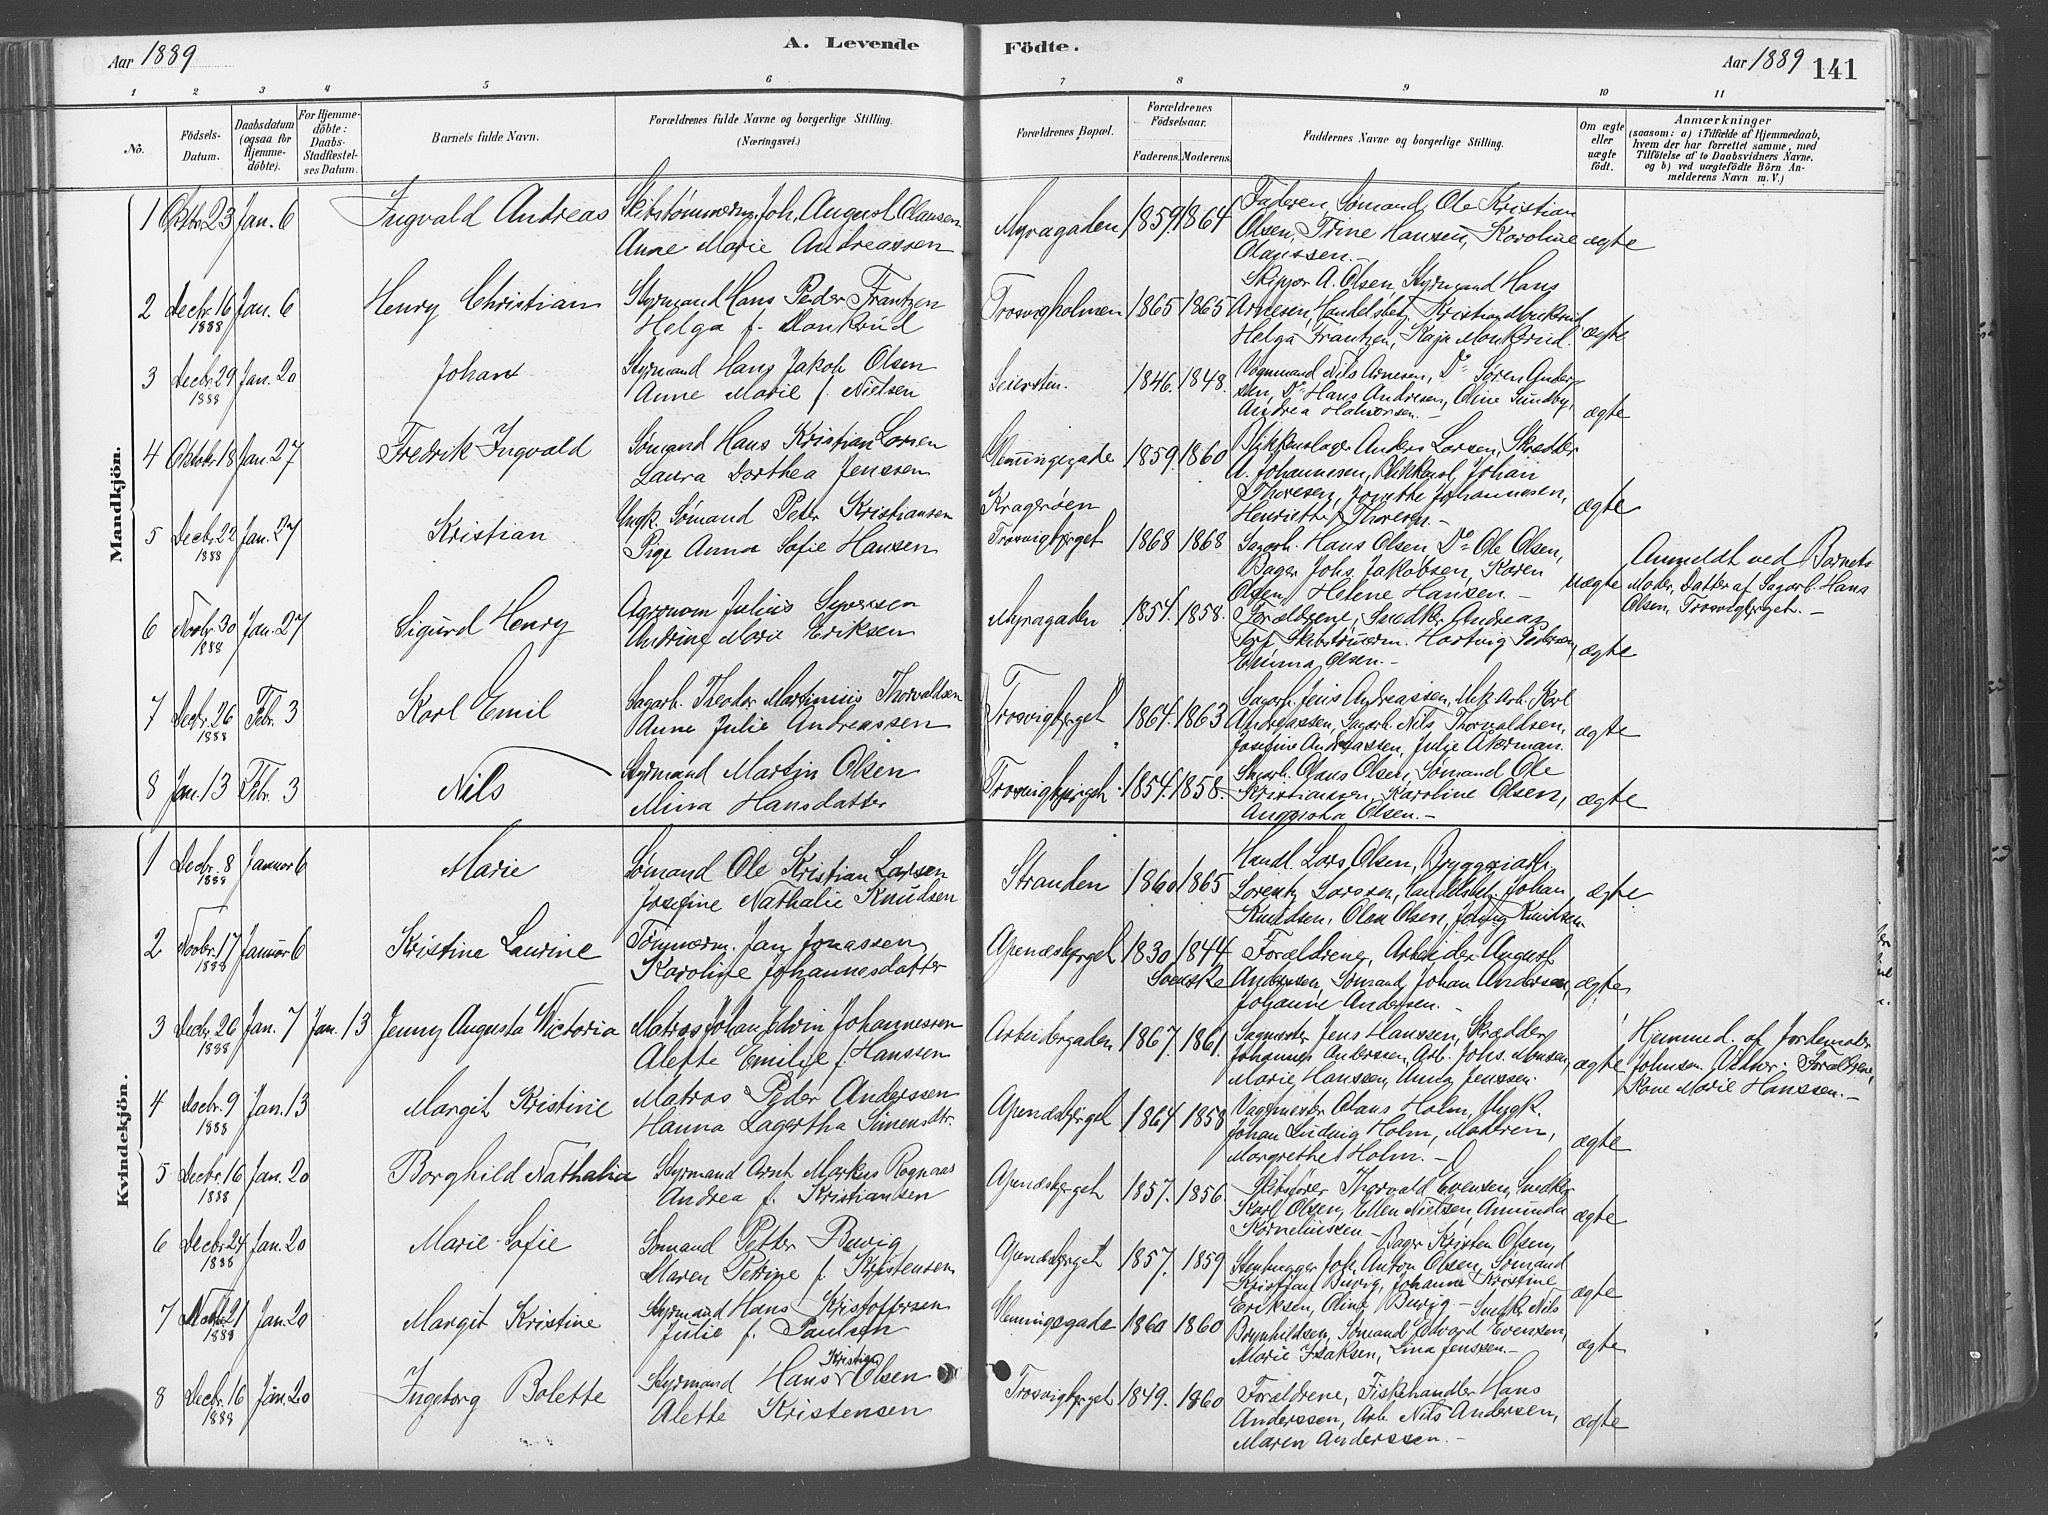 Aar 1889
A. Levende Födte.
Aar 1889 141
1 2 3 4 5 6 7 8 9 10 11
No.
Födsels-Datum.
Daabsdatum (ogsaa for Hjemme-döbte).
For Hjemme-döbte: Daabs-Stadfæstel-ses Datum.
Barnets fulde Navn.
Forældrenes fulde Navne og borgerlige Stilling.
(Næringsvei.)
Forældrenes Bopæl.
Forældrenes Födselsaar.
Faderens. Moderens.
Faddernes Navne og borgerlige Stilling.
Om ægte eller uægte født.
Anmærkninger
(saasom: a) i Tilfælde af Hjemmedaab,
hvem der har forrettet samme, med
Tilføielse af to Daabsvidners Navne.
og b) ved uægtefödte Börn An-
melderens Navn m. V.)
Mandkjön.
1 Oktbr. 23 Jan. 6 Ingvald Andreas
Skibstømmerm. Joh. August Olausen
Anne Marie Andreassen
Myragaden 1859. 1864
Faderen, Sømand Ole Kristian
Olsen, Trine Hansen, Karoline
Olaussen.-
ægte
2 Decbr. 16 1888 Jan. 6 Henry Christian
Styrmand Hans Peder Frantzen
Helga f. Monkerud
Trosvigholmen 1865 1865
Skipper A. Olsen, Styrmand Hans
Arnesen, Handelsbet. Kristian Monkerud
Helga Frantzen, Kaja Monkerud.
ægte
3 Decbr. 29 1888 Jan. 20 Johan
Styrmand Hans Jakob Olsen
Anne Marie f. Nielsen
Seiersten. 1846. 1848.
Vognmand Nils Arnesen, Do Søren Ander-
sen, Do Hans Andresen, Oline Sundby,
Andrea Halvorsen.-
ægte
4 Oktobr. 18 Jan. 27 Fredrik Ingvald
Sømand Hans Kristian Larsen
Laura Dorthea Jenssen
Glemmingegade 1859. 1860
Blikkenslager Anders Larsen, Skrædder
A. Johannesen, Blikkensl. Johan
Thoresen, Johannesen,
Henriette Thoresen-
ægte
5 Decbr. 22 1888 Jan. 27 Kristian
Ungk. Sømand Peter Kristiansen
Pige Anna Sofie Hansen
Kragerøen
Trosvigberget 1868 1868
Sagarb. Hans Olsen Do Ole Olsen,
Bager Johs. Jakobsen, Karen
Olsen, Helene Hansen.-
uægte
Anmeldt ved Barnets
Moder, Datter af Sagarb. Hans
Olsen, Trosvigberget.-
6 Novbr. 30 1888 Jan. 27 Sigurd Henry
Agronom Julius Syversen
Andrine Marie Eriksen
Myragaden 1854. 1858.
Forældrene, Snedker Andreas
Skibstømerm. Hartvig Pedersen,
Emma Olsen.-
ægte
7 Decbr. 26 1888 Febr. 3 Karl Emil
Sagarb. Theodor Martinius Thorvaldsen
Anne Julie Andreassen
Trosvigberget 1864. 1863
Sagarb. Jens Andreassen, Mek. Arb. Karl
Andreassen, Sagarb. Nils Thorvaldsen,
Josefine Andreassen, Julie Akerman.
ægte
8 Jan. 13 Febr. 3 Nils
Styrmand Martin Olsen
Mina Hansdatter
Trosvigberget 1854. 1858.
Sagarb. Olaus Olsen, Sømand Ole
Kristiansen, Karoline Olsen,
Augusta Olsen.-
ægte
Kvindekjön.
1 Decbr. 8 1888 Januar 6 Marie
Sømand Ole Kristian Larsen
Josefine Nathalie Knudsen
Stranden 1860 1865
Handl. Lars Olsen, Bryggeriarb.
Lorentz Larssen, Handelsbet. Johan
Knudsen, Olea Olsen, Jenny Knudsen
ægte
2 Novbr. 17 1888 Januar 6 Kristine Laurine
Tømmerm. Jan Jonassen
Karoline Johannesdatter
Apenæsberget 1830 1844
Svenske
Forældrene, Arbeider August
Anderssen, Sømand Johan Andersen,
Johanne Andersen.-
ægte
3 Decbr. 26 1888 Jan. 7 Jan. 13 Jenny Augusta Victoria
Matros Johan Edvin Johannessen
Alette Emilie f. Hanssen
Arbeidergaden 1867. 1861.
Sagmester Jens Hanssen, Skrædder
Johannes Anderssen, Arb. Johs. Monsen,
Marie Hanssen, Anna Jenssen.
ægte
Hjemmed. af Jordemoder
Johnsen. Vidner: Forældrene,
Kone Marie Hanssen.-
4 Decbr. 9 1888 Jan. 13 Margit Kristine
Matros Peder Anderssen
Hanna Lagertha Simensdtr.
Apenæsberget 1864 1858
Vagtmester Olaus Holm, Ungk.
Johan Ludvig Holm, Moderen,
Margrethe Holm.-
ægte
5 Decbr. 16 1888 Jan. 20 Borghild Nathalia
Styrmand Arnt Markus Rognaas
Andrea f. Kristiansen
Apenæsberget 1857. 1856
Skibsfører Thorvald Evensen, Snedker
Karl Olsen, Ellen Nielsen, Amunda
Korneliussen.-
ægte
6 Decbr. 24 1888 Jan. 20 Marie Sofie
Sømand Petter Buvig
Maren Petrine f. Kristensen
Apenæsberget 1857. 1859
Bager Kristen Olsen,
Stenhugger Joh. Anton Olsen, Sømand
Kristian Buvig, Johanne Kristine
Eriksen, Oline Buvig.-
ægte
7 Novbr. 21 1888 Jan. 20 Margit Kristine
Styrmand Hans Kristoffersen
Julie f. Paulsen
Glemmingegade 1860 1860
Snedk. Nils
Brynhildsen, Sømand Edvard Evensen,
Marie Isaksen, Lina Jenssen.-
ægte
8 Decbr. 16 1888 Jan. 20 Ingeborg Bolette
Styrmand Hans Kristian Olsen
Alette Kristensen
Trosvigberget 1849. 1860
Forældrene, Fiskehandler Hans
Anderssen, Arb. Nils Andersen,
Maren Anderssen.-
ægte